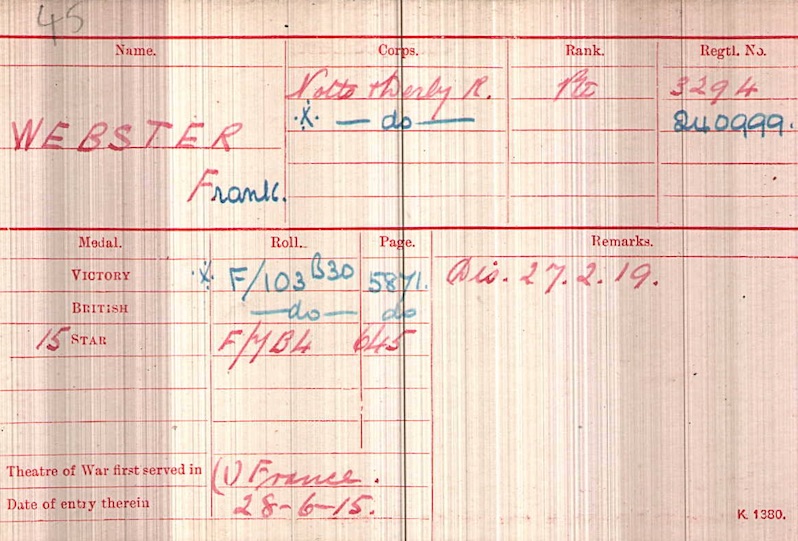 45
Name. Corps. Rank. Regtl. No.
Notts & Derby R. Pte 3294
WEBSTER ·X· — do — 240999.
Frank.
Medal. Roll. Page. Remarks.
VICTORY ·X· F/103 B30 5871. Dis. 27.2.19.
BRITISH —do— do
15 STAR F/7B4 645
Theatre of War first served in (1) France.
Date of entry therein 28-6-15.
K. 1380.